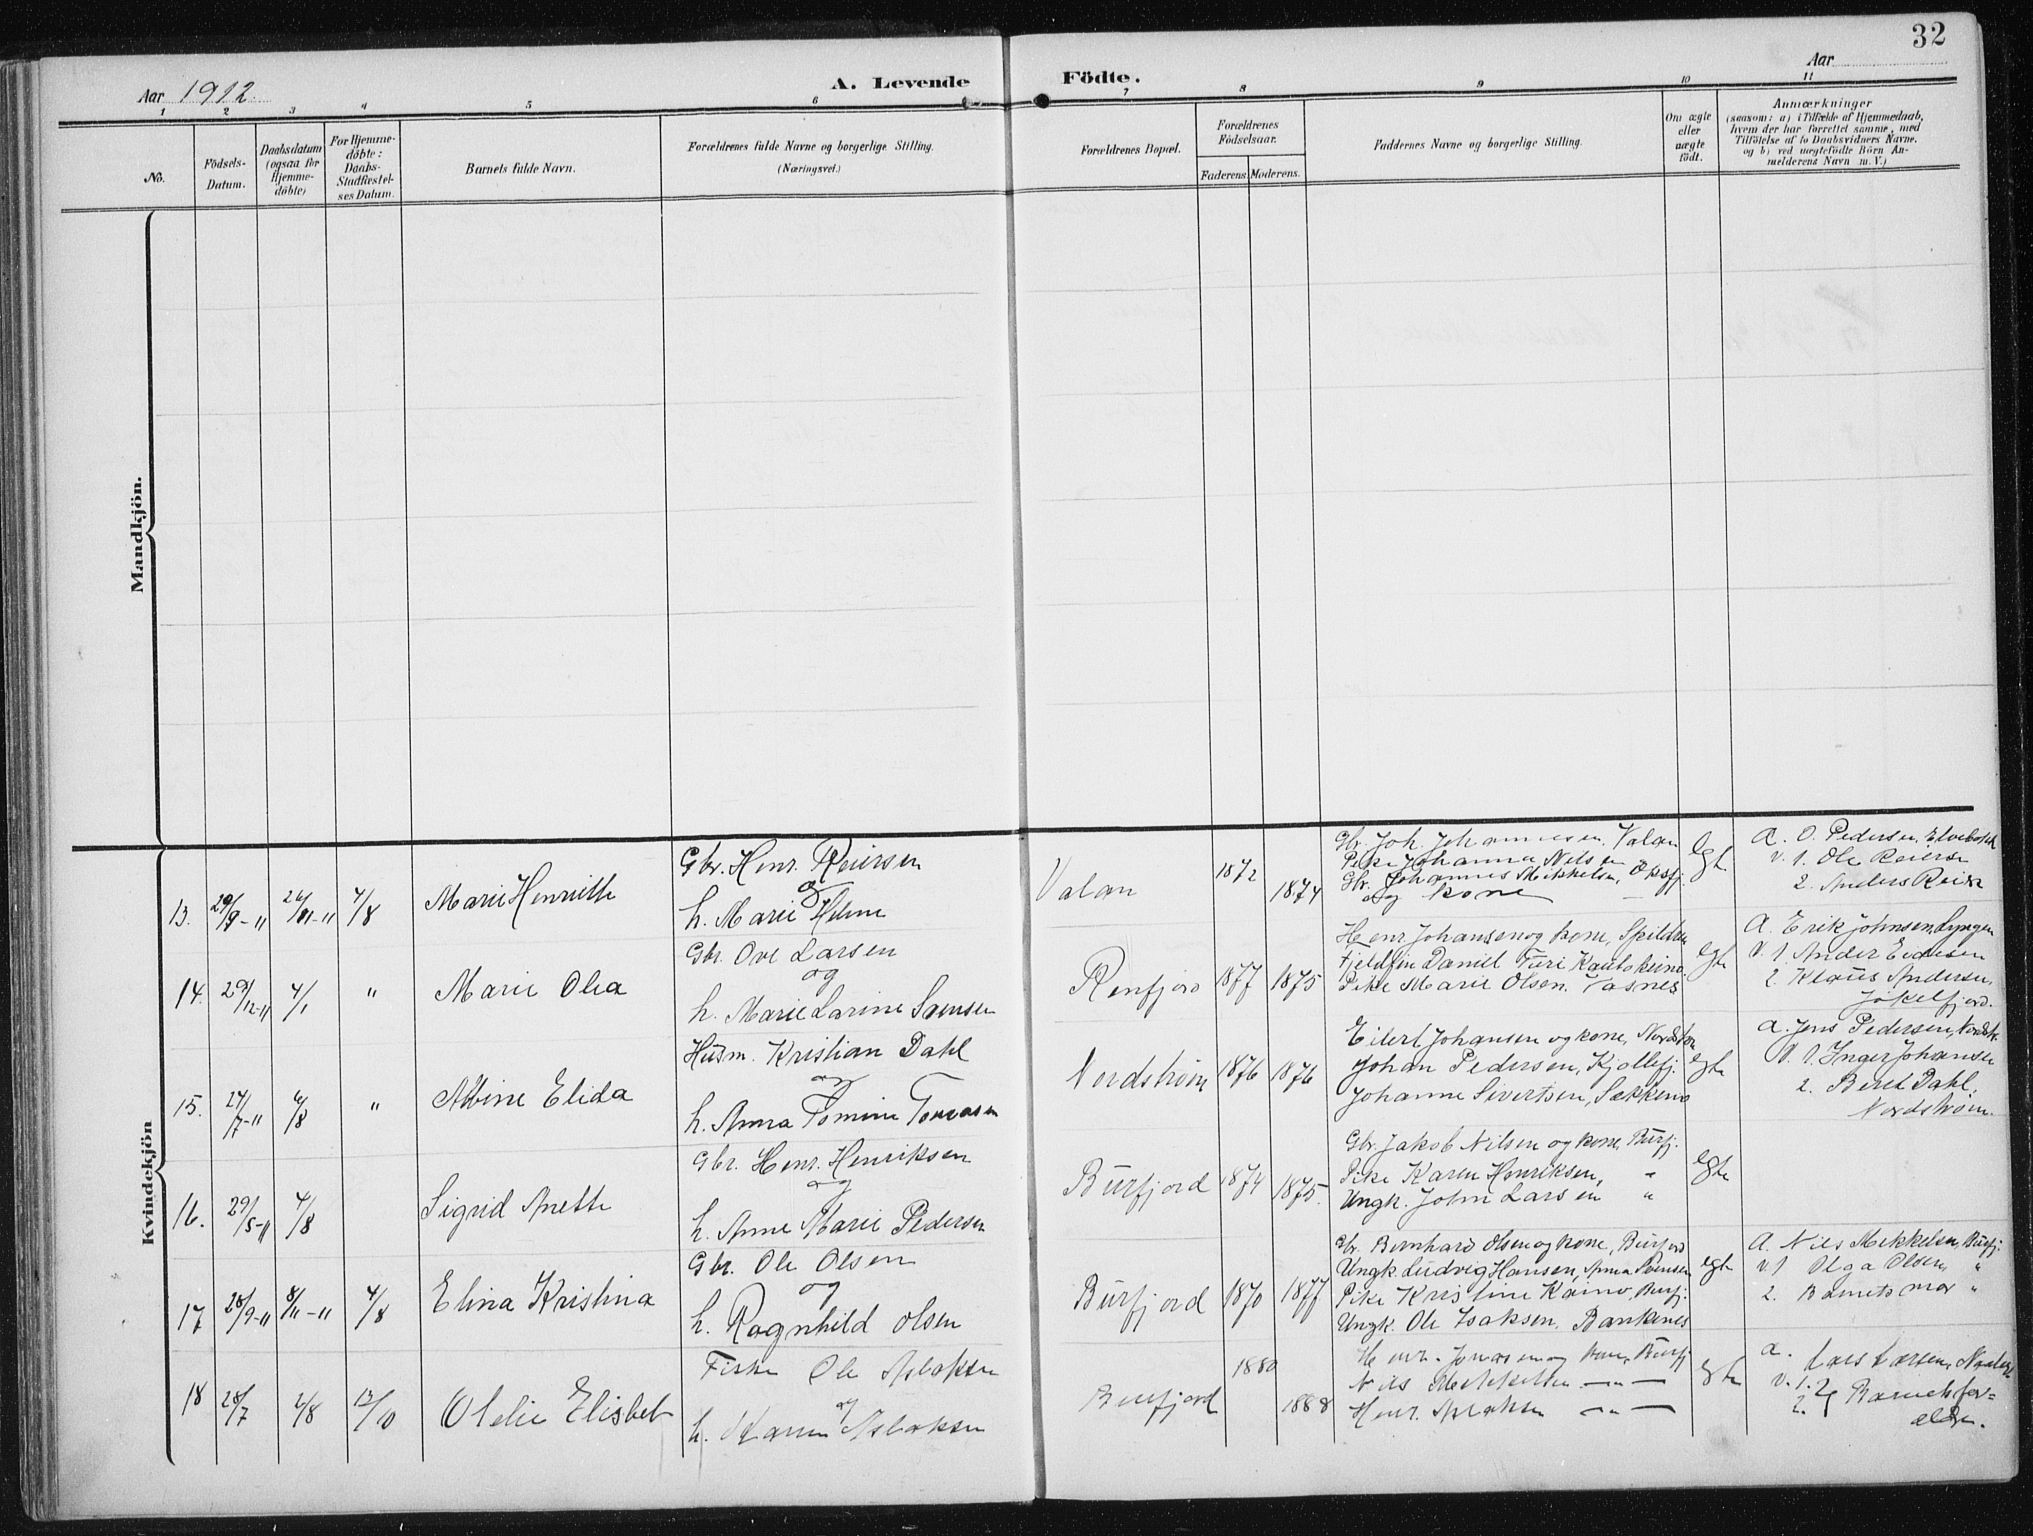 32
Aar 1912.
A. Levende Födte.
Aar
1 2 3 4 5 6 7 8 9 10 11
No.
Födsels-Datum.
Daabsdatum (ogsaa for Hjemme-döbte)
For Hjemme-döbte: Daabs-Stadfæstel-ses Datum.
Barnets fulde Navn.
Forældrenes fulde Navne og borgerlige Stilling.
(Næringsvei.)
Forældrenes Bopæl.
Forældrenes Födselsaar.
Faderens. Moderens.
Faddernes Navne og borgerlige Stilling.
Om ægte eller uægte födt.
Anmærkninger
(saasom: a) i Tilfælde af Hjemmedaab,
hvem der har forrettet samme, med
Tilföielse af to Daabsvidners Navne.
og b) ved uægtefödte Börn An-
melderens Navn m. V.)
Mandkjön.
Kvindekjön
13. 29/9-11 26/11-11 4/8 Marie Henriette
Gbr. Henr. Reiersen
og
h. Marie Helene
Valan 1872 1874
Gbr. Joh. Johannesen, Valan
Pike Johanna Nilsen
Gbr. Johannes Mikkelsen, Öksfj.
og kone
egte
A. O. Pedersen,
V. 1. Ole Reierse
2. Anders Reier
14. 29/12-11 4/1 " Marie Olea
Gbr. Ove Larsen
og
h. Marie Larine
Renfjord 1877 1875
Henr. Johansen og kone, Spildren
Fjeldfin Daniel Turi Kautokeino.
Pike Marie Olsen.
egte
A. Erik Johnsen Lyngen
V. 1 Ander
2. Klaus Andersen,
Jökelfjord.
15. 24/7-11 4/8 " Albine Elida
Husm. Kristian Dahl
og
h. Anna Tomine Tomasen
Nordstrøm 1876 1876
Eilert Johansen og kone, Nordstrøm
Johan Pedersen, Kjøllefj.
Johanne Sivertsen,
egte
A. Jens Pedersen, Nordstr.
V. 1 Inger Johanse
2. Beret Dahl,
Nordstrøm.
16. 29/5-11 4/8 Sigrid Anette
Gbr. Henr. Henriksen
og
h. Anne Marie Pedersen
Burfjord 1874 1875.
Gbr. Jakob Nilsen og kone, Burfj.
Pike Karen Henriksen, "
Ungk. John Larsen "
egte
17 28/9-11 8/11-11 4/8 Elina Kristina
Gbr. Ole Olsen
og
h. Ragnhild Olsen
Burfjord 1870 1877
Gbr. Bernhard Olsen og kone, Burfjord
Ungk. Ludvig Hansen, Anna Svensen
Pike Kristine Kaino, Burfj.
Ungk. Ole Isaksen,
egte
A. Nils Mikkelsen, Burfj.
V. 1 Olga Olsen, "
2. Barnets mor "
18 28/7 4/8 13/10 Olelie Elisbet
Fisker Ole Aslaksen
og
h. Karen Aslaksen
Burfjord 1880 1888
Henr. Jonasen og kone, Burfj
Nils Mikkelsen — " —
Henr. Aslaksen — " —
egte
A. Lars Larsen,
V. 1. 2.
Barnets for=
ældre.